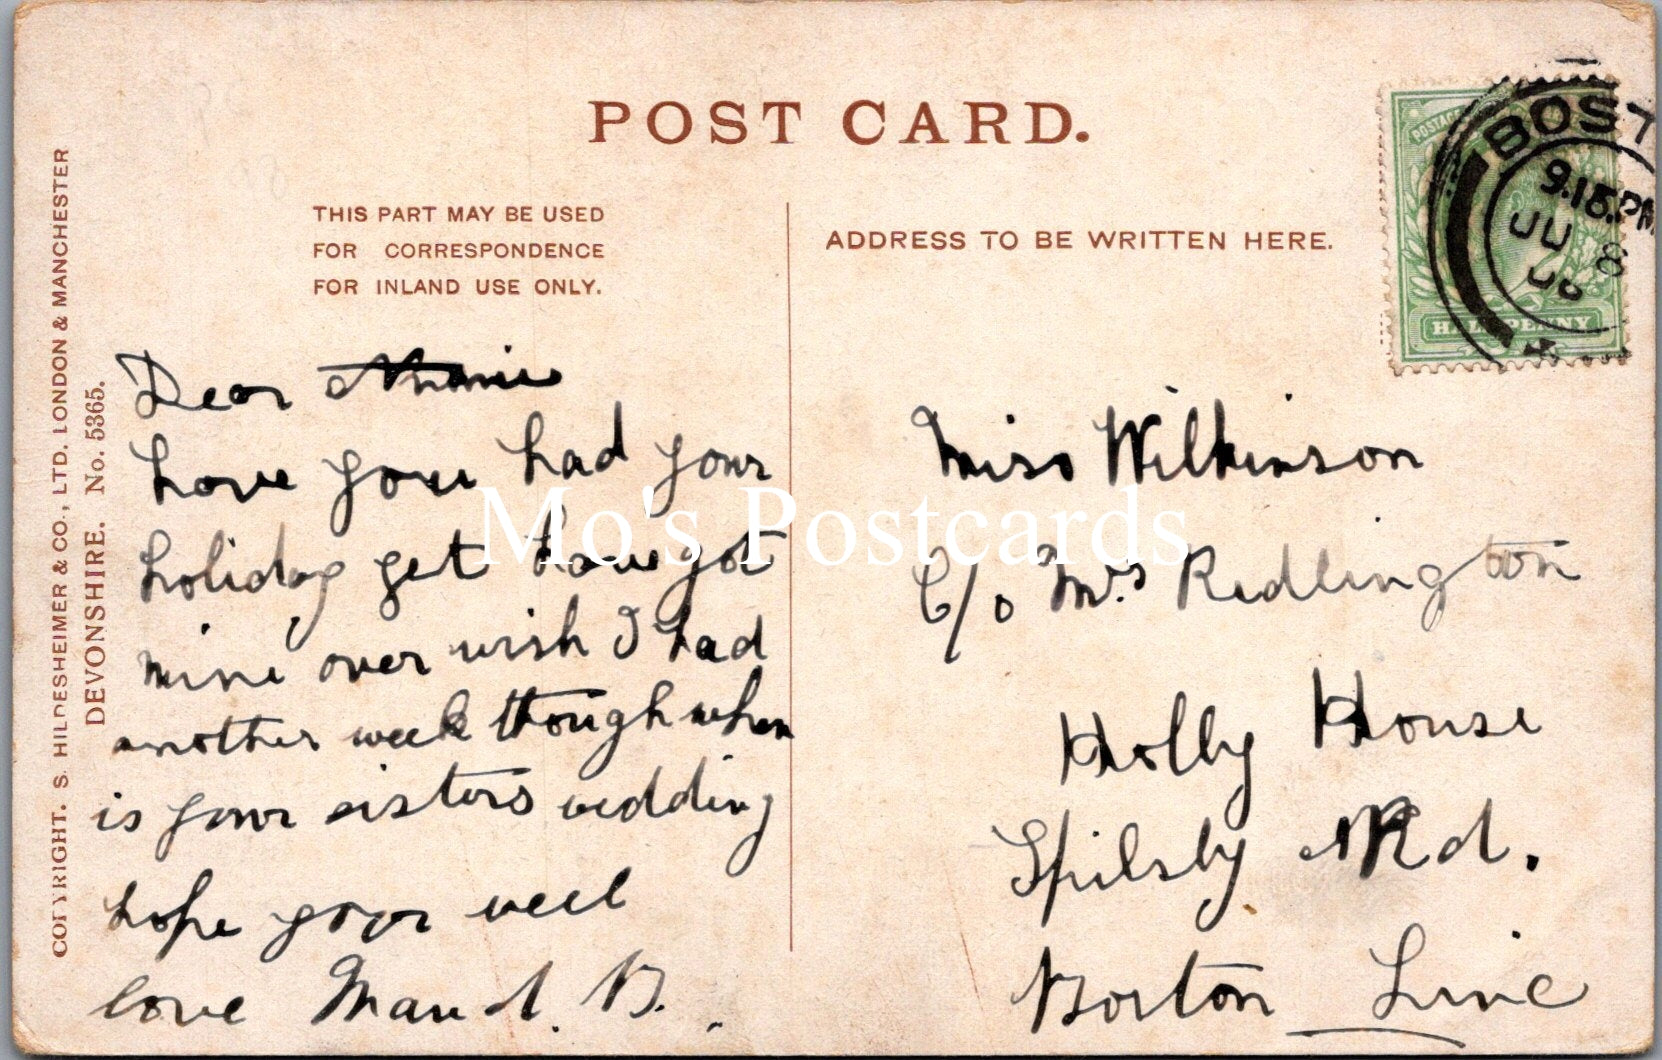 POST CARD.
THIS PART MAY BE USED
FOR CORRESPONDENCE
FOR INLAND USE ONLY.
ADDRESS TO BE WRITTEN HERE.
COPYRIGHT. S. HILDESHEIMER & CO., LTD. LONDON & MANCHESTER
DEVONSHIRE. No. 5365.
POSTAGE
HALFPENNY
BOST
9.15.PM
JU 8
Dear
have you had your
holiday yet have got
mine over wish I had
another week though when
is your sisters wedding
hope your well
love Maud. B.
Miss Wilkinson
C/o Mrs Ridlington
Holly House
Spilsby Rd.
Boston Linc
Mo's Postcards